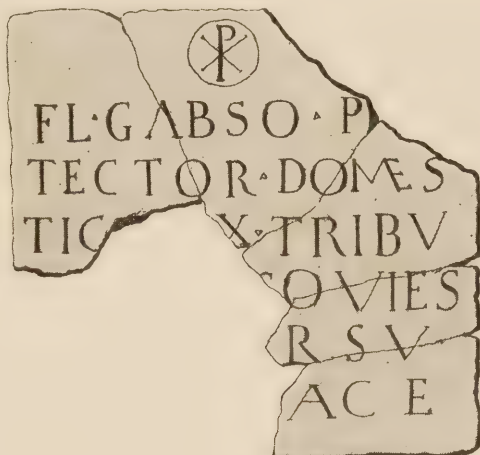 ☧
FL·GABSO·P
TECTOR·DOMES
TIC X·TRIBV
OVIES
R SV
ACE